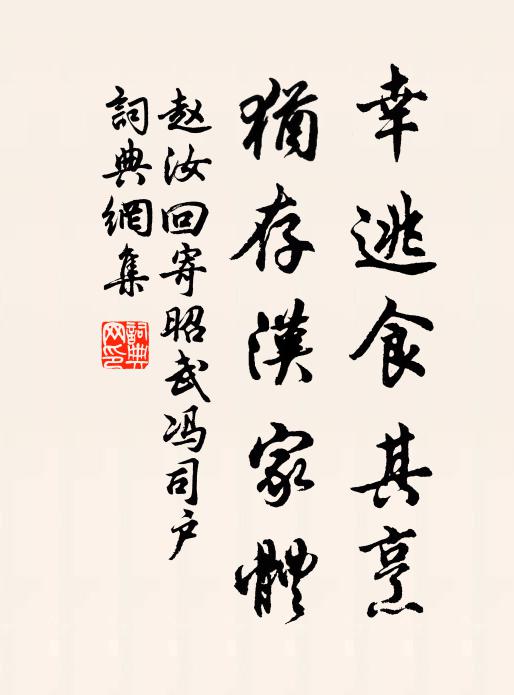 幸逃食其烹
猶存漢家體
赵汝回寄昭武冯司户
詞典網集
詞典網印